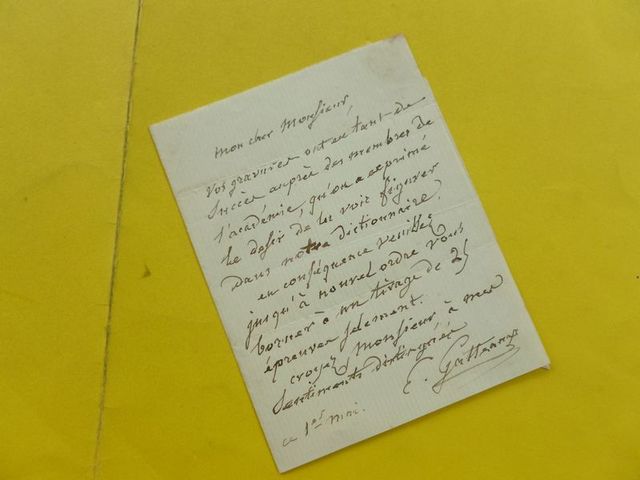 mon cher Monsieur,
vos gravures ont eu tant de
succès auprès des membres de
l'académie, qu'on a exprimé
le desir de les voir figurer
dans notre dictionnaire.
en conséquence veuillez
jusqu'à nouvel ordre vous
borner à un tirage de 25
épreuves seulement.
croyez Monsieur à mes
sentiments distingués
E. Gatteaux
ce 1er mai.